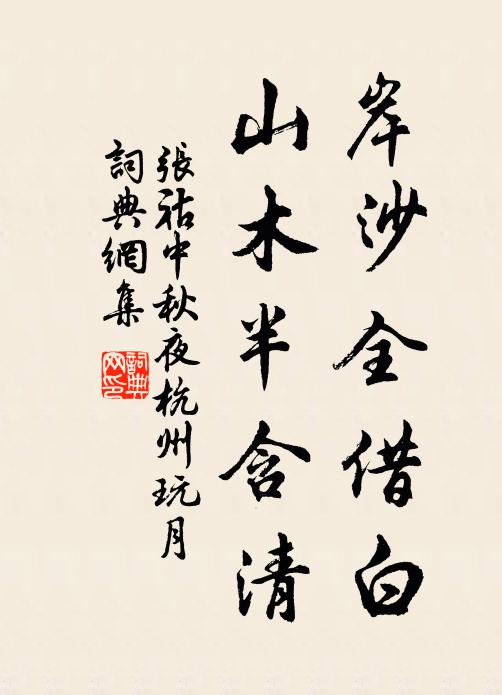 岸沙全借白
山木半含清
張祜中秋夜杭州玩月
詞典網集
詞典網印